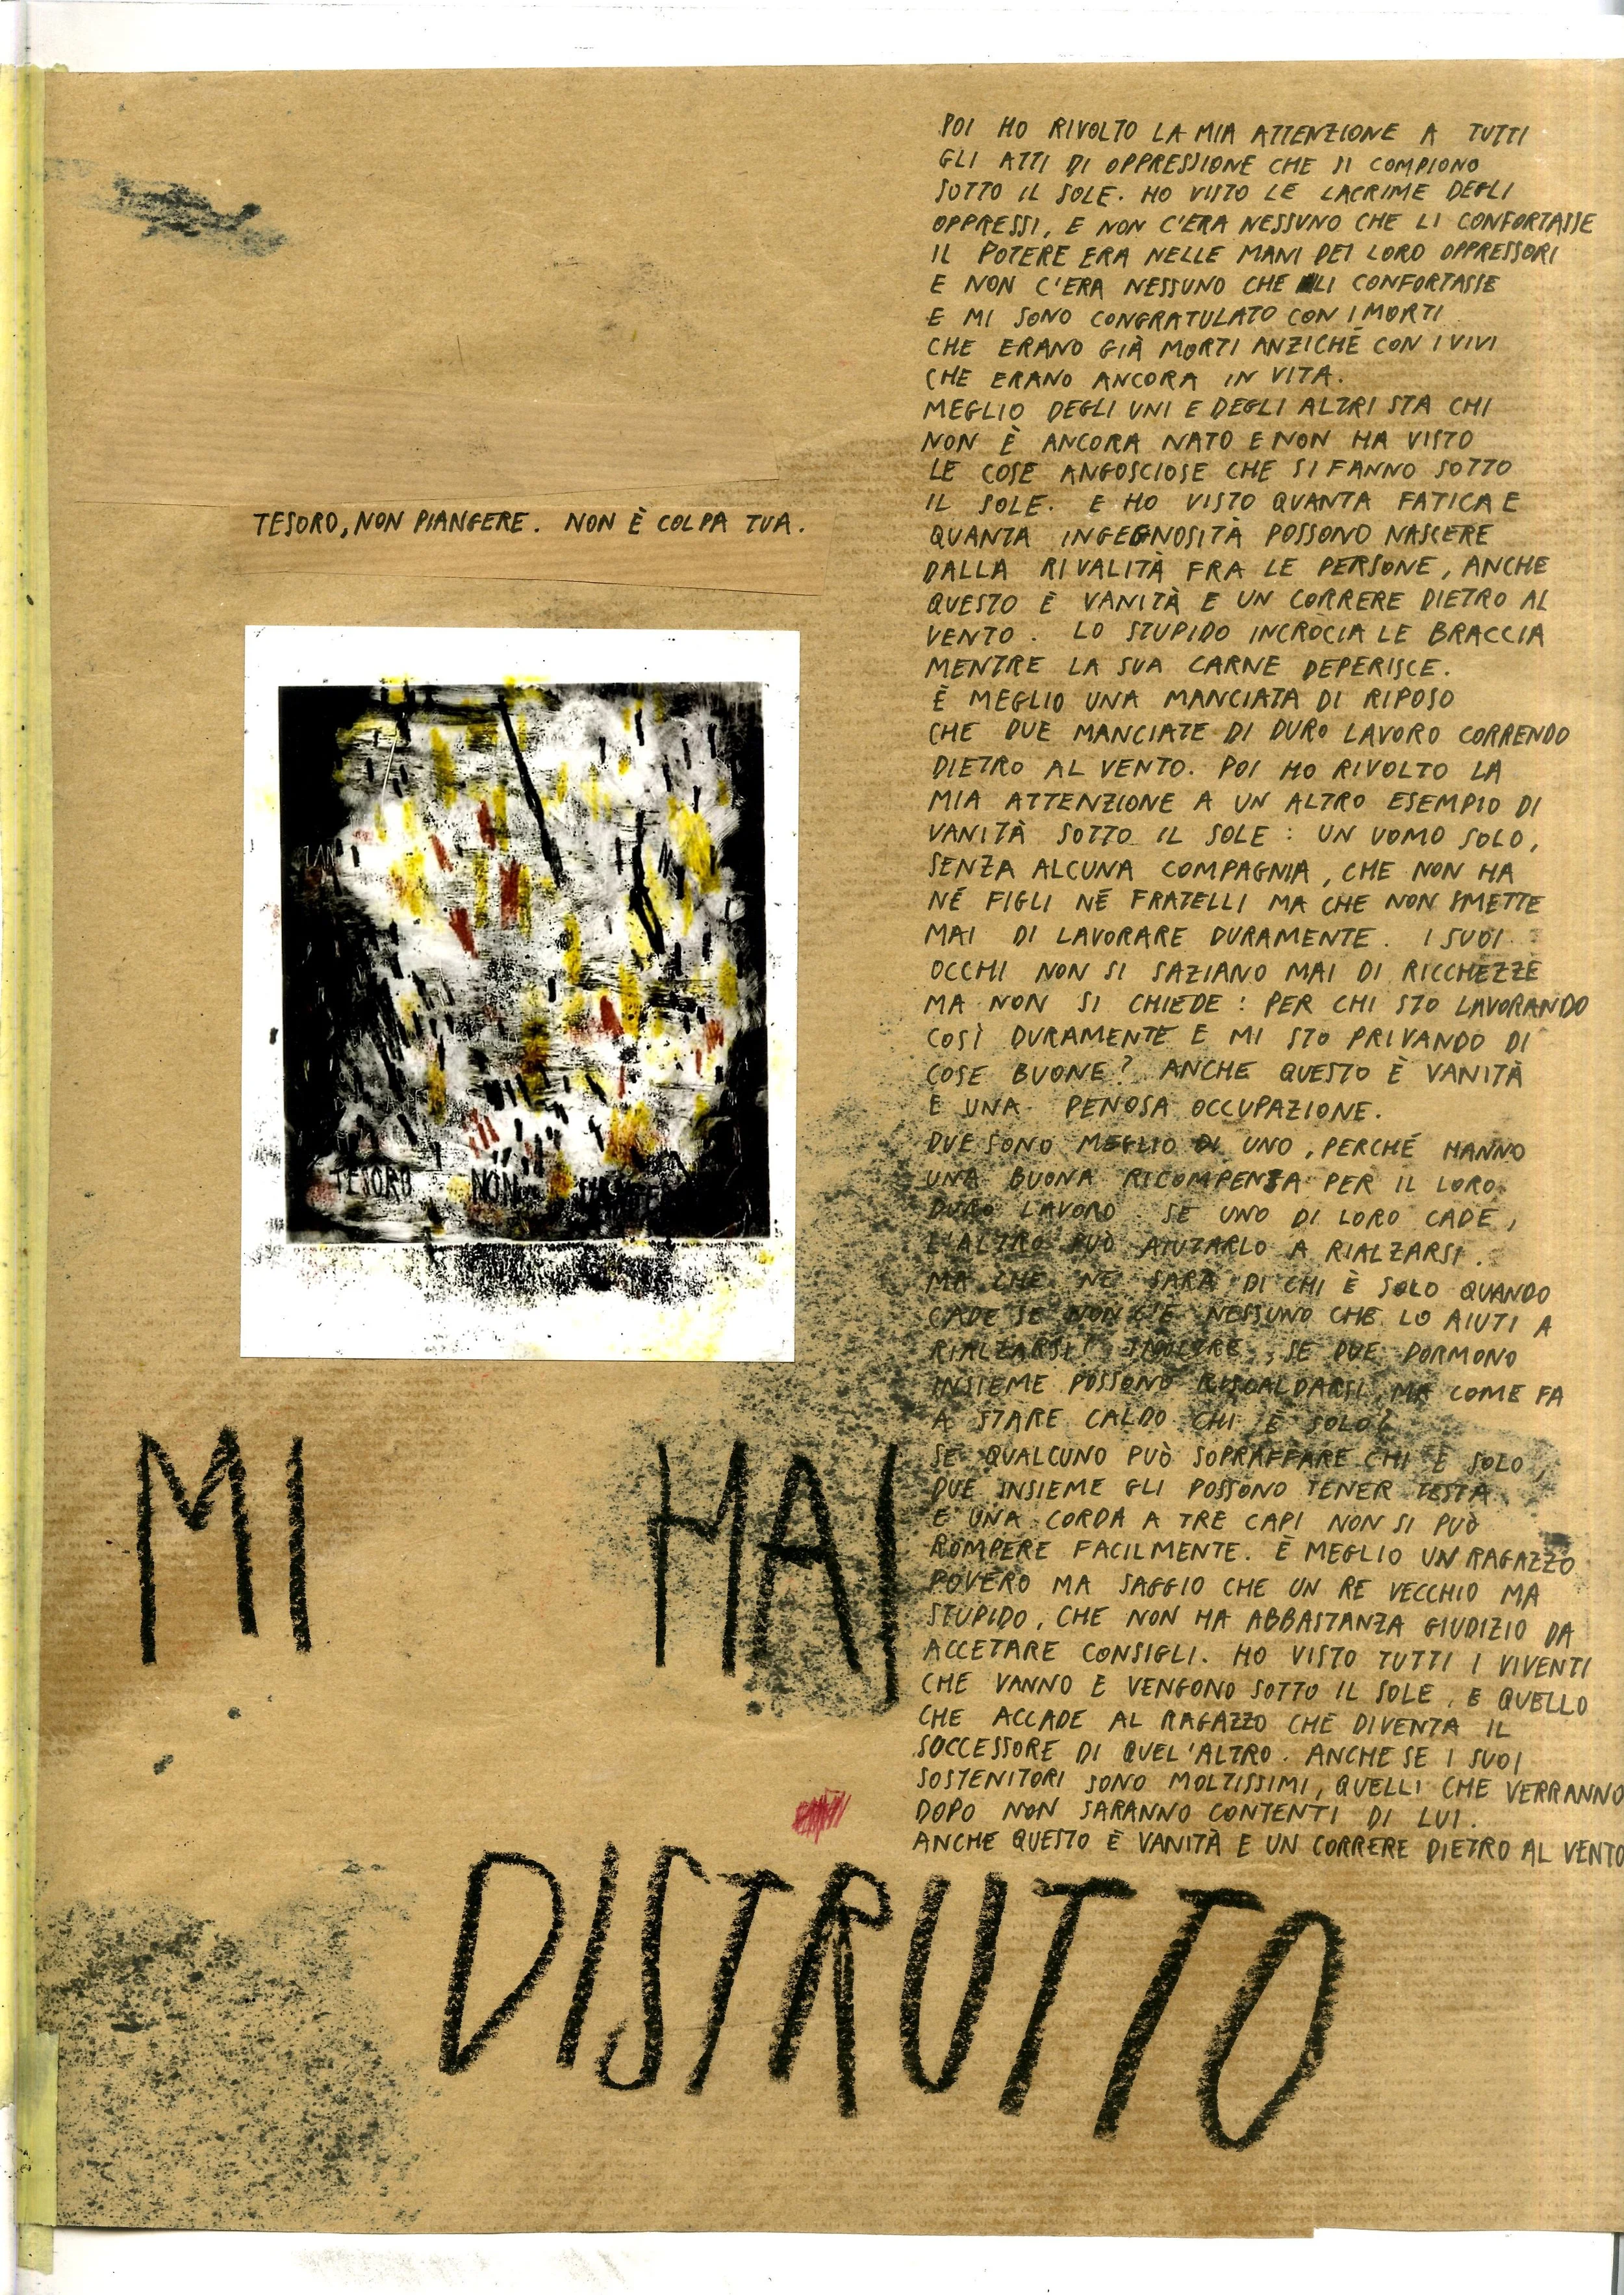 TESORO, NON PIANGERE. NON È COLPA TUA.
TESORO NON
MI HAI
DISTRUTTO
POI HO RIVOLTO LA MIA ATTENZIONE A TUTTI
GLI ATTI DI OPPRESSIONE CHE SI COMPIONO
SOTTO IL SOLE. HO VISTO LE LACRIME DEGLI
OPPRESSI, E NON C'ERA NESSUNO CHE LI CONFORTASSE
IL POTERE ERA NELLE MANI DEI LORO OPPRESSORI
E NON C'ERA NESSUNO CHE LI CONFORTASSE
E MI SONO CONGRATULATO CON I MORTI
CHE ERANO GIÀ MORTI ANZICHÉ CON I VIVI
CHE ERANO ANCORA IN VITA.
MEGLIO DEGLI UNI E DEGLI ALTRI STA CHI
NON È ANCORA NATO E NON HA VISTO
LE COSE ANGOSCIOSE CHE SI FANNO SOTTO
IL SOLE. E HO VISTO QUANTA FATICA E
QUANTA INGEGNOSITÀ POSSONO NASCERE
DALLA RIVALITÀ FRA LE PERSONE, ANCHE
QUESTO È VANITÀ E UN CORRERE DIETRO AL
VENTO. LO STUPIDO INCROCIA LE BRACCIA
MENTRE LA SUA CARNE DEPERISCE.
È MEGLIO UNA MANCIATA DI RIPOSO
CHE DUE MANCIATE DI DURO LAVORO CORRENDO
DIETRO AL VENTO. POI HO RIVOLTO LA
MIA ATTENZIONE A UN ALTRO ESEMPIO DI
VANITÀ SOTTO IL SOLE: UN UOMO SOLO,
SENZA ALCUNA COMPAGNIA, CHE NON HA
NÉ FIGLI NÉ FRATELLI MA CHE NON SMETTE
MAI DI LAVORARE DURAMENTE. I SUOI
OCCHI NON SI SAZIANO MAI DI RICCHEZZE
MA NON SI CHIEDE: PER CHI STO LAVORANDO
COSÌ DURAMENTE E MI STO PRIVANDO DI
COSE BUONE? ANCHE QUESTO È VANITÀ
E UNA PENOSA OCCUPAZIONE.
DUE SONO MEGLIO DI UNO, PERCHÉ HANNO
UNA BUONA RICOMPENSA PER IL LORO
DURO LAVORO. SE UNO DI LORO CADE,
L'ALTRO PUÒ AIUTARLO A RIALZARSI.
MA CHE NE SARÀ DI CHI È SOLO QUANDO
CADE SE NON C'È NESSUNO CHE LO AIUTI A
RIALZARSI? INOLTRE, SE DUE DORMONO
INSIEME POSSONO RISCALDARSI, MA COME FA
A STARE CALDO CHI È SOLO?
SE QUALCUNO PUÒ SOPRAFFARE CHI È SOLO,
DUE INSIEME GLI POSSONO TENER TESTA
E UNA CORDA A TRE CAPI NON SI PUÒ
ROMPERE FACILMENTE. È MEGLIO UN RAGAZZO
POVERO MA SAGGIO CHE UN RE VECCHIO MA
STUPIDO, CHE NON HA ABBASTANZA GIUDIZIO DA
ACCETARE CONSIGLI. HO VISTO TUTTI I VIVENTI
CHE VANNO E VENGONO SOTTO IL SOLE, E QUELLO
CHE ACCADE AL RAGAZZO CHE DIVENTA IL
SOCCESSORE DI QUEL'ALTRO. ANCHE SE I SUOI
SOSTENITORI SONO MOLTISSIMI, QUELLI CHE VERRANNO
DOPO NON SARANNO CONTENTI DI LUI.
ANCHE QUESTO È VANITÀ E UN CORRERE DIETRO AL VENTO